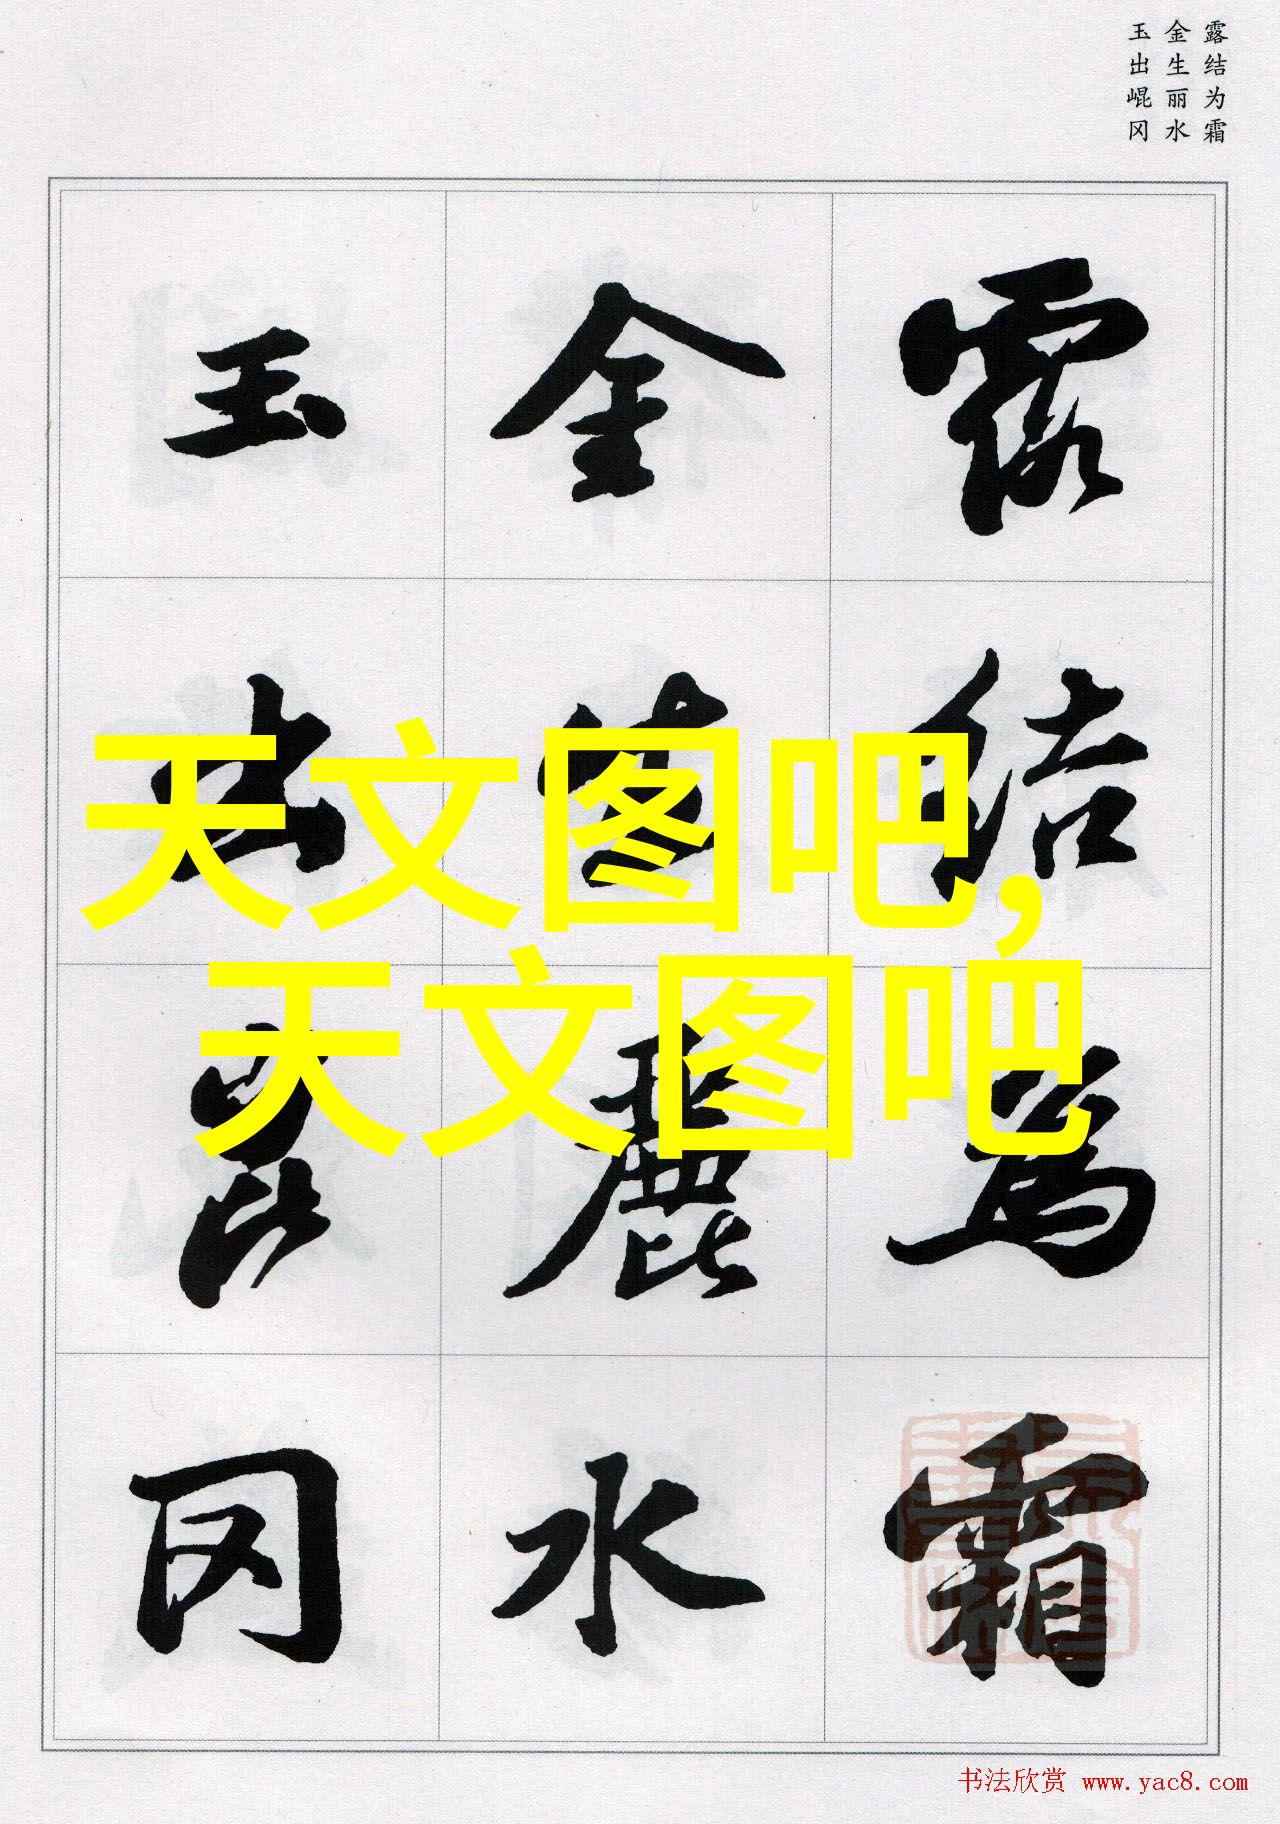 露结为霜
金生丽水
玉出崐冈
露結為霜
金生麗水
玉出崑冈
天文图吧,
天文图吧
书法欣赏 www.yac8.com